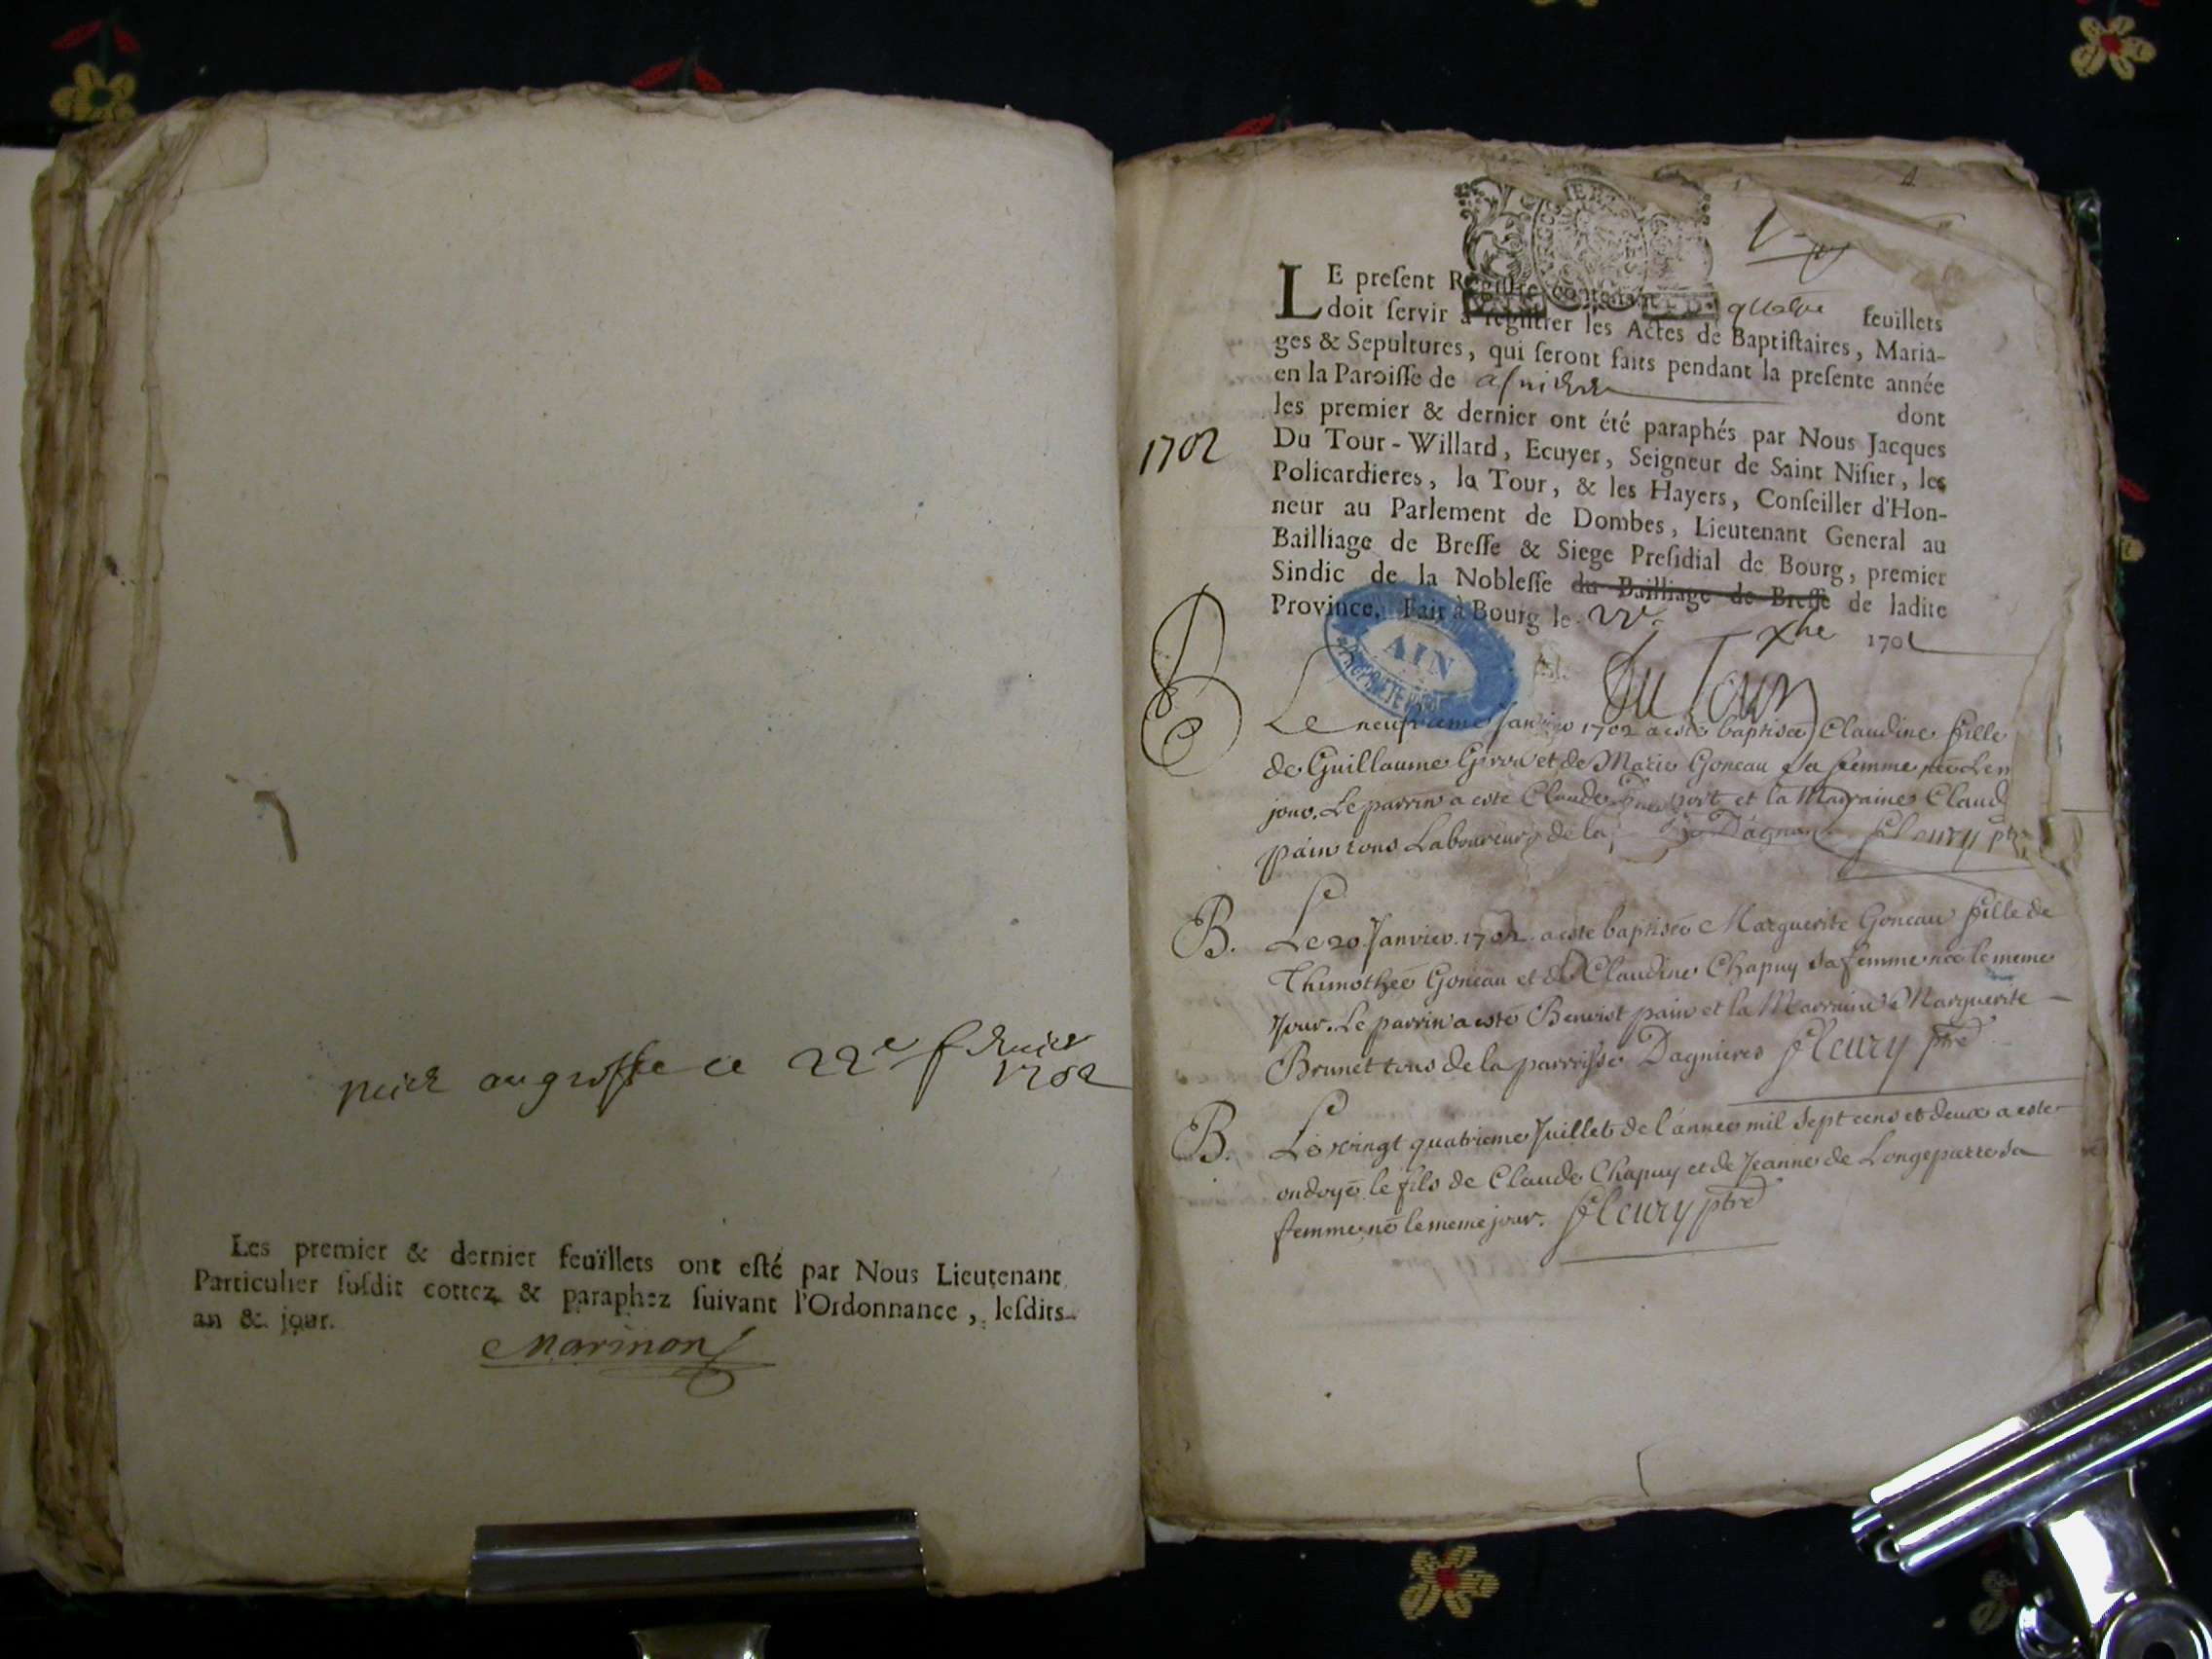 au greffe ce 22e
1702
Les premier & dernier feüillets ont esté par Nous Lieutenant
Particulier susdit cottez & paraphez suivant l'Ordonnance, lesdits
an & jour.
Marinon
LE present Registre contenant quatre feuillets
doit servir à registrer les Actes de Baptistaires, Maria-
ges & Sepultures, qui seront faits pendant la presente année
en la Paroisse de dont
les premier & dernier ont été paraphés par Nous Jacques
1702
Du Tour-Willard, Ecuyer, Seigneur de Saint Nisier, les
Policardieres, la Tour, & les Hayers, Conseiller d'Hon-
neur au Parlement de Dombes, Lieutenant General au
Bailliage de Bresse & Siege Presidial de Bourg, premier
Sindic de la Noblesse du Bailliage de Bresse de ladite
Province. Fait à Bourg le xbre 1701
AIN
Du Tour
Le neufvieme Janvier 1702 a esté baptisée Claudine fille
de Guillaume et de Marie Goneau sa femme
jour. Le parrin a esté Claude et la Marraine Claud
pain tous Laboureurs de la Fleury ptre
B. Le 20 Janvier 1702 a esté baptisée Marguerite Goneau fille de
Thimothée Goneau et de Claudine Chapuy sa femme née le meme
Jour. Le parrin a esté Benoist pain et la Marraine Marguerite
Brunet tous de la parroisse Dagnieres Fleury ptre
B. Le vingt quatrieme Juillet de l'année mil sept cens et deux a esté
ondoyé le fils de Claude Chapuy et de Jeanne de Longepierre sa
femme né le meme jour. Fleury ptre